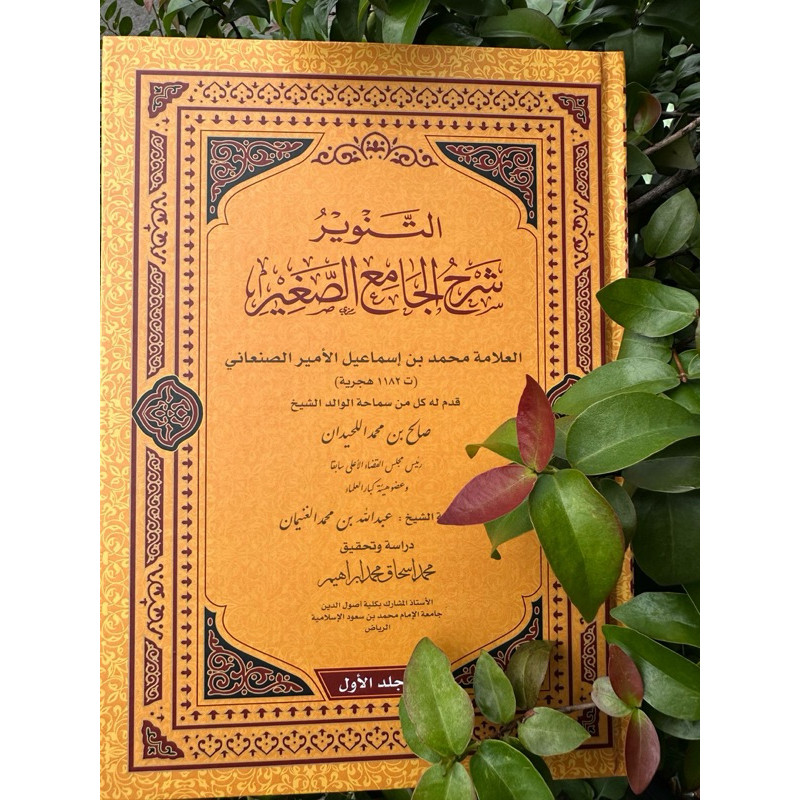 التَّنْوِيرُ
شَرْحُ الْجَامِعِ الصَّغِيْرِ
العلامة محمد بن إسماعيل الأمير الصنعاني
(ت ١١٨٢ هجرية)
قدم له كل من سماحة الوالد الشيخ
صالح بن محمد اللحيدان
رئيس مجلس القضاء الأعلى سابقا
وعضو هيئة كبار العلماء
الشيخ : عبدالله بن محمد الغنيمان
دراسة وتحقيق
محمد إسحاق محمد إبراهيم
الأستاذ المشارك بكلية أصول الدين
جامعة الإمام محمد بن سعود الإسلامية
الرياض
جلد الأول